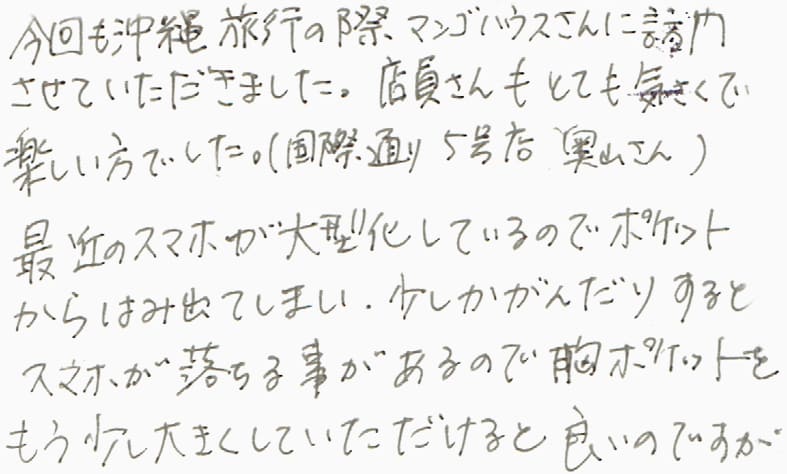 今回も沖縄旅行の際マンゴハウスさんに訪問
させていただきました。店員さんもとても気さくで
楽しい方でした。(国際通り5号店 奥山さん)
最近のスマホが大型化しているのでポケット
からはみ出てしまい、少しかがんだりすると
スマホが落ちる事があるので胸ポケットを
もう少し大きくしていただけると良いのですが